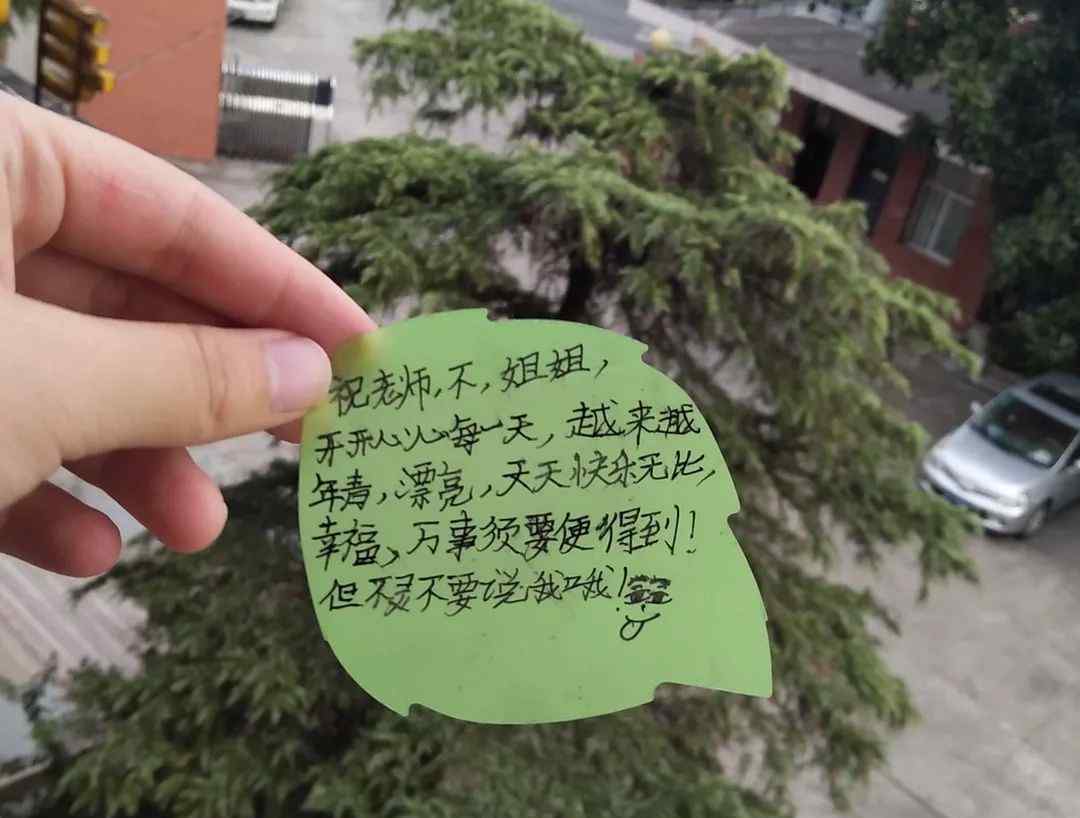 祝老师,不,姐姐,
开开心心每一天,越来越
年青,漂亮,天天快乐无比,
幸福,万事须要便得到!
但不灵不要说我哦!